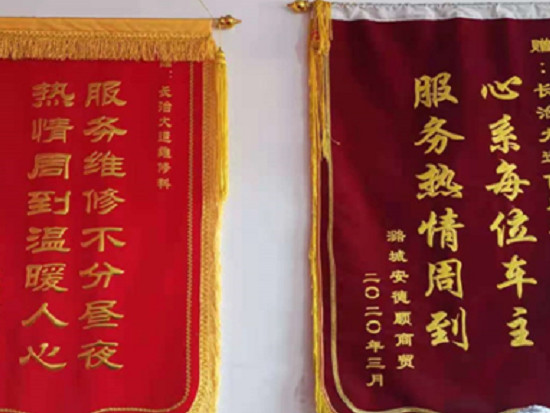 赠：长治大道维修科
服务维修不分昼夜
热情周到温暖人心
赠：长治大道
心系每位车主
服务热情周到
潞城安德顺商贸
二〇二〇年三月